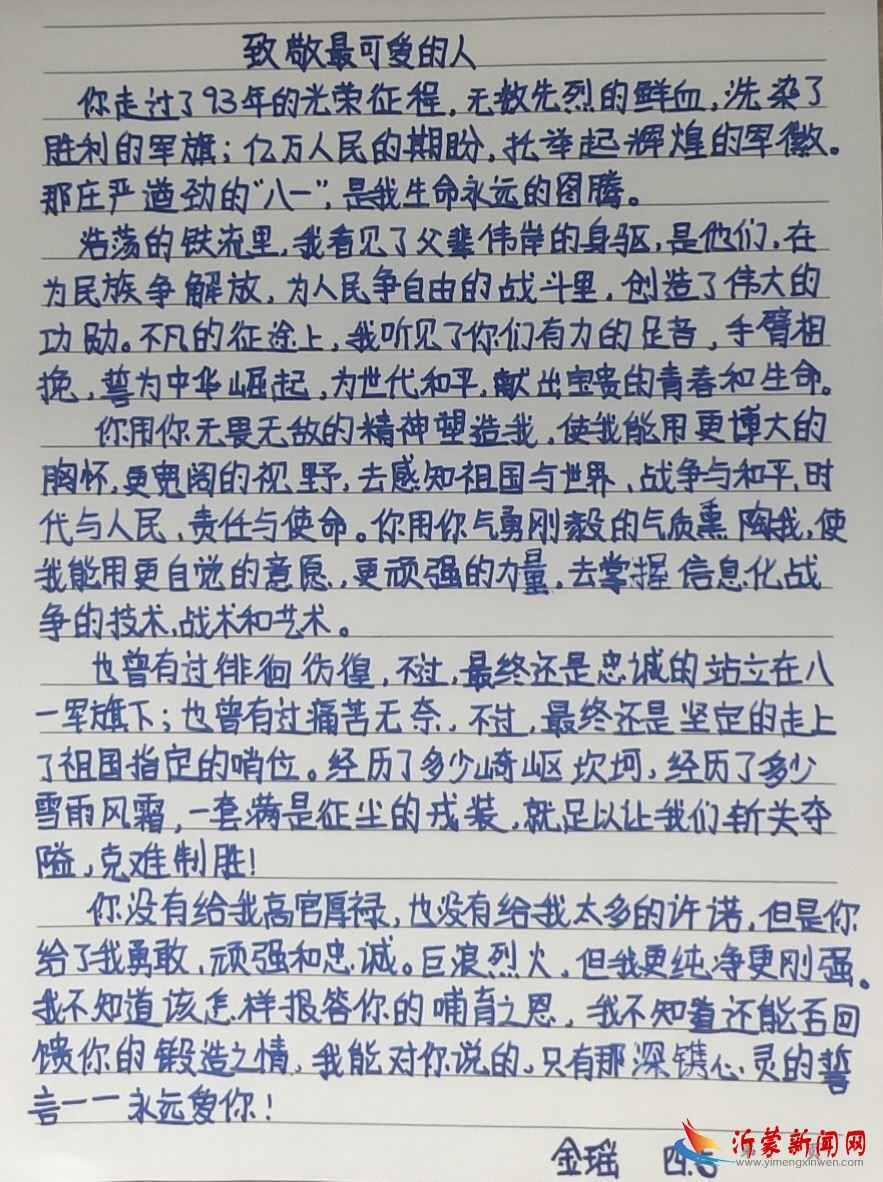 致敬最可爱的人
你走过了93年的光荣征程，无数先烈的鲜血，洗染了
胜利的军旗；亿万人民的期盼，托举起辉煌的军徽。
那庄严遒劲的“八一”，是我生命永远的图腾。
浩荡的铁流里，我看见了父辈伟岸的身驱，是他们，在
为民族争解放，为人民争自由的战斗里，创造了伟大的
功勋。不凡的征途上，我听见了你们有力的足音，手臂相
挽，誓为中华崛起，为世代和平，献出宝贵的青春和生命。
你用你无畏无敌的精神塑造我，使我能用更博大的
胸怀，更宽阔的视野，去感知祖国与世界、战争与和平、时
代与人民、责任与使命。你用你气勇刚毅的气质熏陶我，使
我能用更自觉的意愿，更顽强的力量，去掌握信息化战
争的技术、战术和艺术。
也曾有过徘徊彷徨，不过，最终还是忠诚的站立在八
一军旗下；也曾有过痛苦无奈，不过，最终还是坚定的走上
了祖国指定的哨位。经历了多少崎岖坎坷，经历了多少
雪雨风霜，一套满是征尘的戎装，就足以让我们斩关夺
隘，克难制胜！
你没有给我高官厚禄，也没有给我太多的许诺，但是你
给了我勇敢、顽强和忠诚。巨浪烈火，但我更纯净更刚强。
我不知道该怎样报答你的哺育之恩，我不知道还能否回
馈你的锻造之情，我能对你说的，只有那深镌心灵的誓
言——永远爱你！
金瑶 四.5
沂蒙新闻网
www.yimengxinwen.com